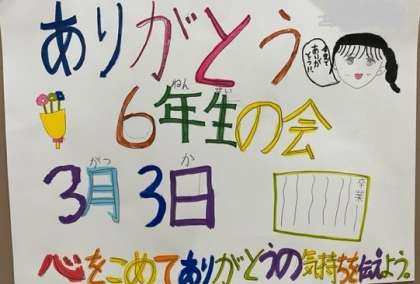 ありがとう
今まで
ありが
とう!!
ねん せい
6年生の会
がつ か
3月3日
卒業
心をこめてありがとうの気持ちを伝えよう。